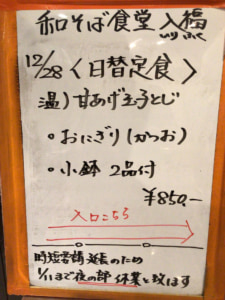 和そば食堂 入福
いり ふく
12/28 〈日替定食〉
温) 甘あげ玉子とじ
・おにぎり(かつお)
・小鉢 2品付
¥850.-
入口こちら
時短要請 延長のため
1/11まで夜の部 休業と致します